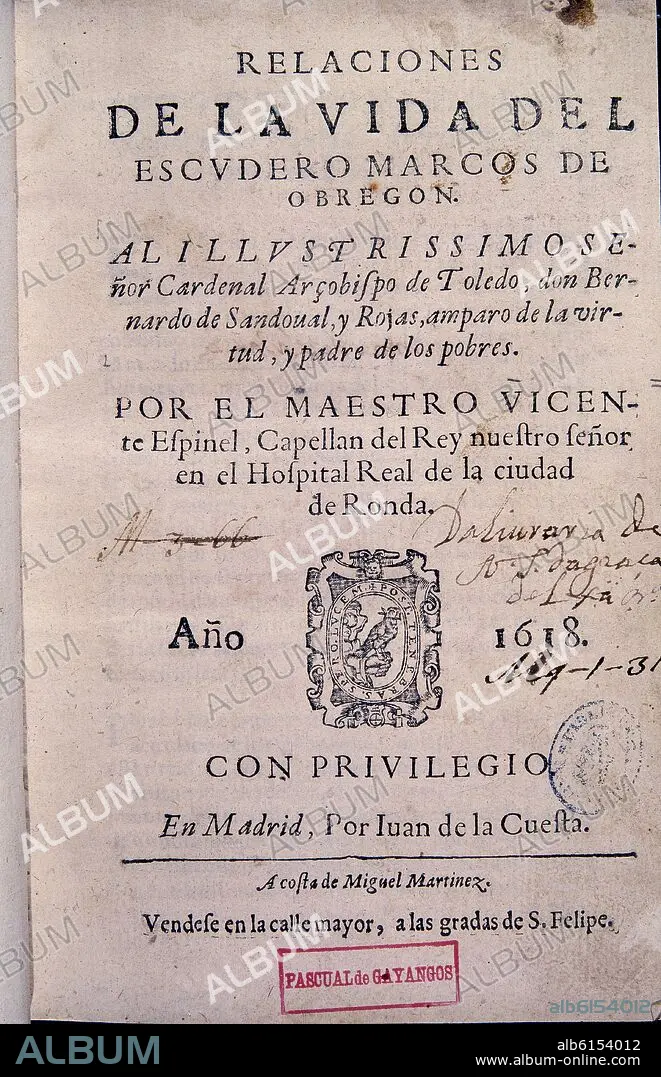 RELACIONES
DE LA VIDA DEL
ESCVDERO MARCOS DE
OBREGON.
AL ILLVSTRISSIMO SE-
ñor Cardenal Arçobiſpo de Toledo, don Ber-
nardo de Sandoual, y Rojas, amparo de la vir-
tud, y padre de los pobres.
POR EL MAESTRO VICEN-
te Eſpinel, Capellan del Rey nueſtro ſeñor
en el Hoſpital Real de la ciudad
de Ronda.
Da liuraria de
POST TENEBRAS SPERO LVCEM
Año 1618.
CON PRIVILEGIO
En Madrid, Por Iuan de la Cueſta.
A coſta de Miguel Martinez.
Vendeſe en la calle mayor, a las gradas de S. Felipe.
PASCUAL de GAYANGOS
alb6154012
ALBUM
alb6154012
www.album-online.com